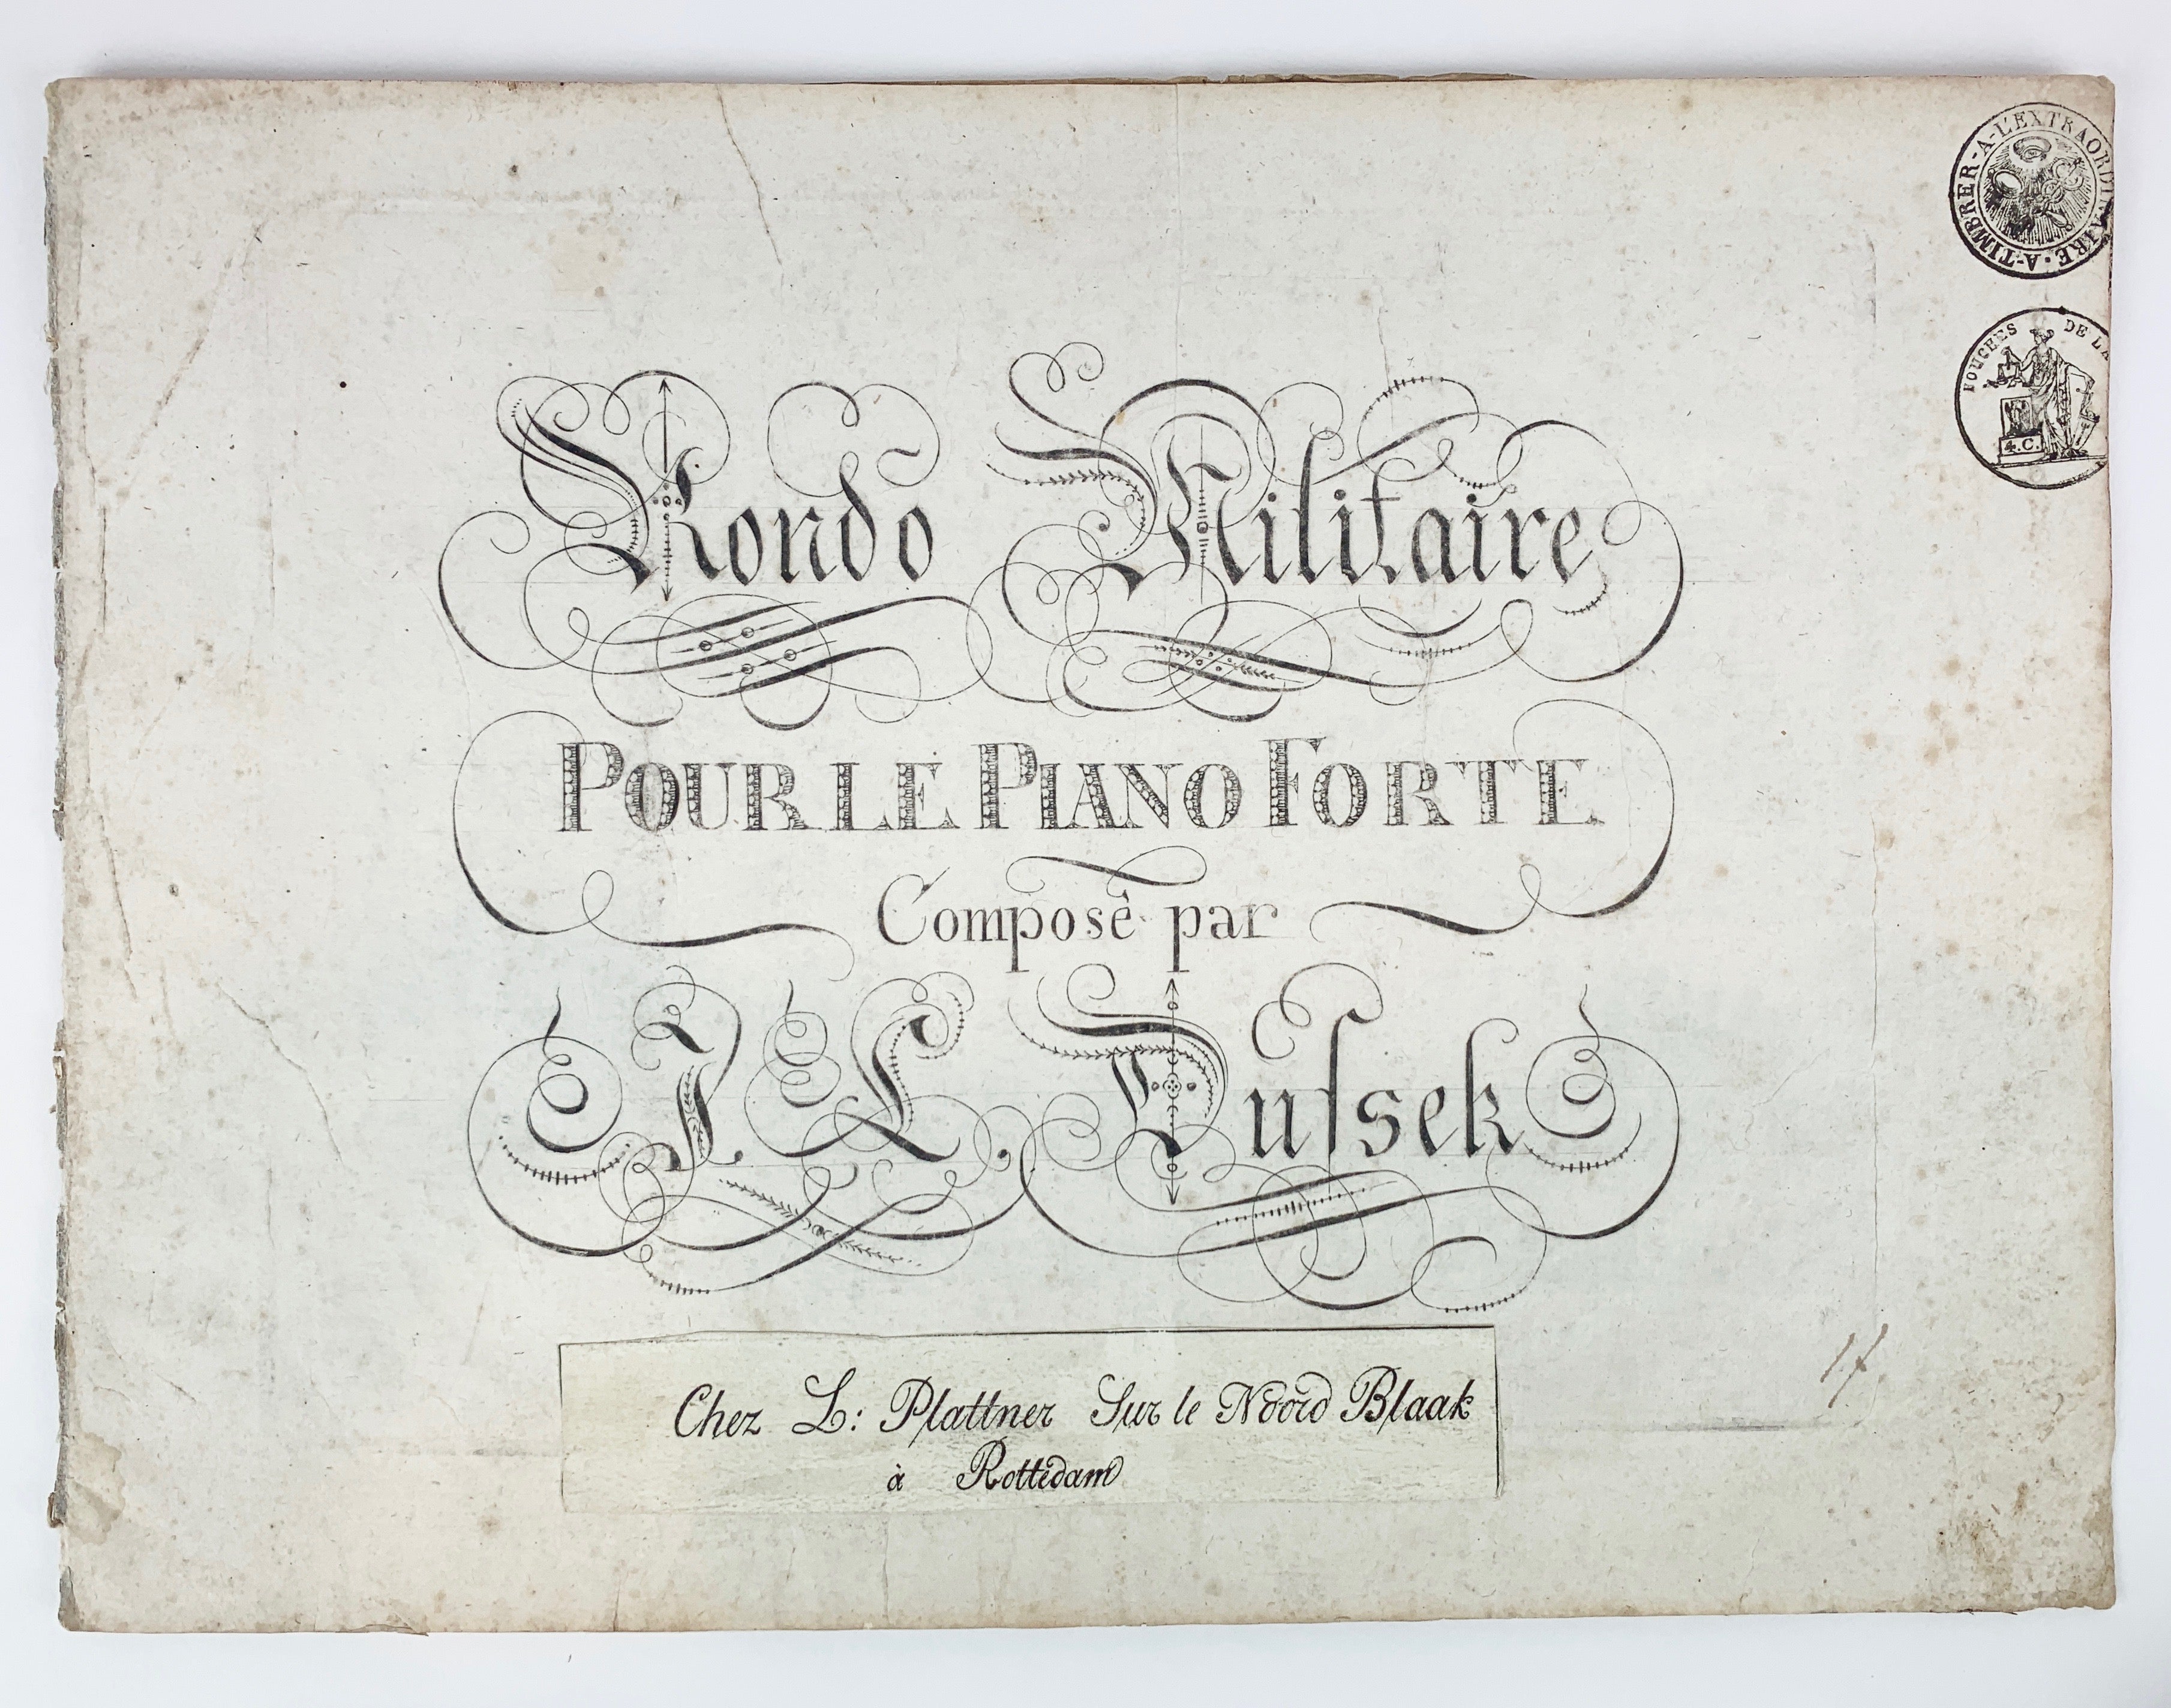 A-TIMBRER-A-L'EXTRAORDINAIRE
BOUCHES DE LA
4.C.
Rondo Militaire
POUR LE PIANO FORTE
Composê par
J. L. Duſsek
Chez L: Plattner Sur le Noord Blaak
à Rottedam